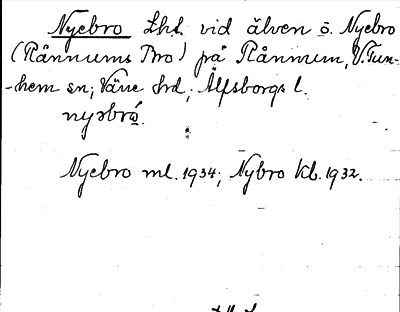 Nyebro Lht vid älven ö. Nyebro
(Rånnums Bro) på Rånnum, V. Tun-
-hem sn; Väne hrd; Älfsborgs l.
nyəbró.
Nyebro ml. 1934; Nybro kb. 1932.